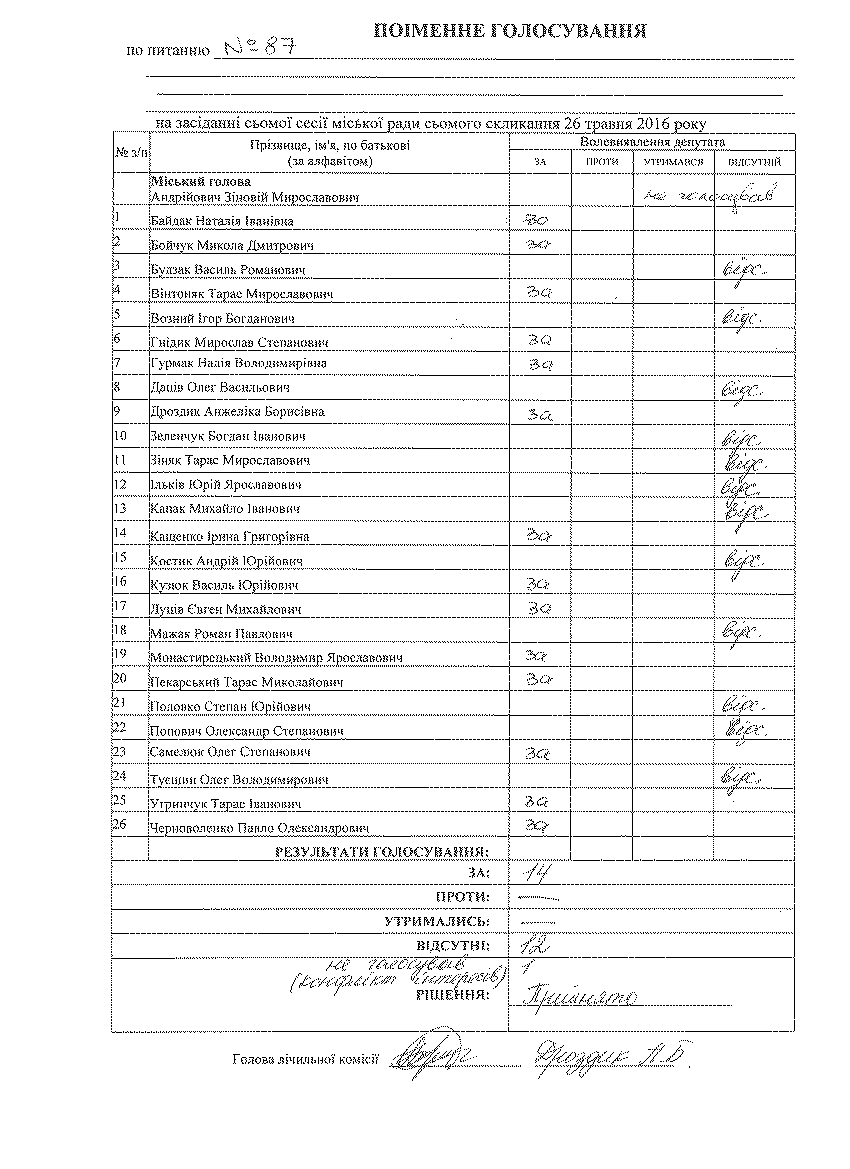 ПОІМЕННЕ ГОЛОСУВАННЯ
по питанню №87
на засіданні сьомої сесії міської ради сьомого скликання 26 травня 2016 року
№ з/п Прізвище, ім'я, по батькові (за алфавітом) Волевиявлення депутата
ЗА ПРОТИ УТРИМАВСЯ ВІДСУТНІЙ
Міський голова
Андрійович Зіновій Мирославович не голосував
1 Байдак Наталія Іванівна за
2 Бойчук Микола Дмитрович за
3 Будзак Василь Романович відс.
4 Вінтоняк Тарас Мирославович за
5 Возний Ігор Богданович відс.
6 Гнідик Мирослав Степанович за
7 Гурмак Надія Володимирівна за
8 Даців Олег Васильович відс.
9 Дроздик Анжеліка Борисівна за
10 Зеленчук Богдан Іванович відс.
11 Зіняк Тарас Мирославович відс.
12 Ільків Юрій Ярославович відс.
13 Капак Михайло Іванович відс.
14 Кащенко Ірина Григорівна за
15 Костик Андрій Юрійович відс.
16 Кузюк Василь Юрійович за
17 Луців Євген Михайлович за
18 Мажак Роман Павлович відс.
19 Монастирецький Володимир Ярославович за
20 Пекарський Тарас Миколайович за
21 Половко Степан Юрійович відс.
22 Попович Олександр Степанович відс.
23 Самелюк Олег Степанович за
24 Туєшин Олег Володимирович відс.
25 Угринчук Тарас Іванович за
26 Черноволенко Павло Олександрович за
РЕЗУЛЬТАТИ ГОЛОСУВАННЯ:
ЗА: 14
ПРОТИ: —
УТРИМАЛИСЬ: —
ВІДСУТНІ: 12
не голосував 1
(конфлікт інтересів)
РІШЕННЯ: Прийнято
Голова лічильної комісії Дроздик А.Б.